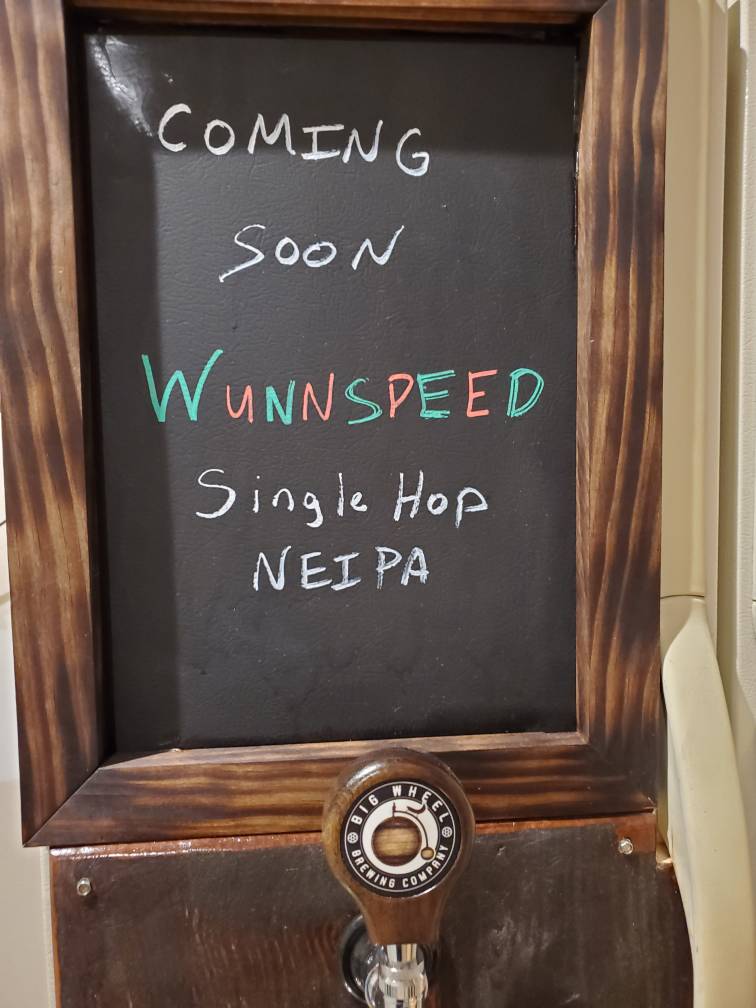 COMING
SOON
WUNNSPEED
Single Hop
NEIPA
BIG WHEEL
BREWING COMPANY